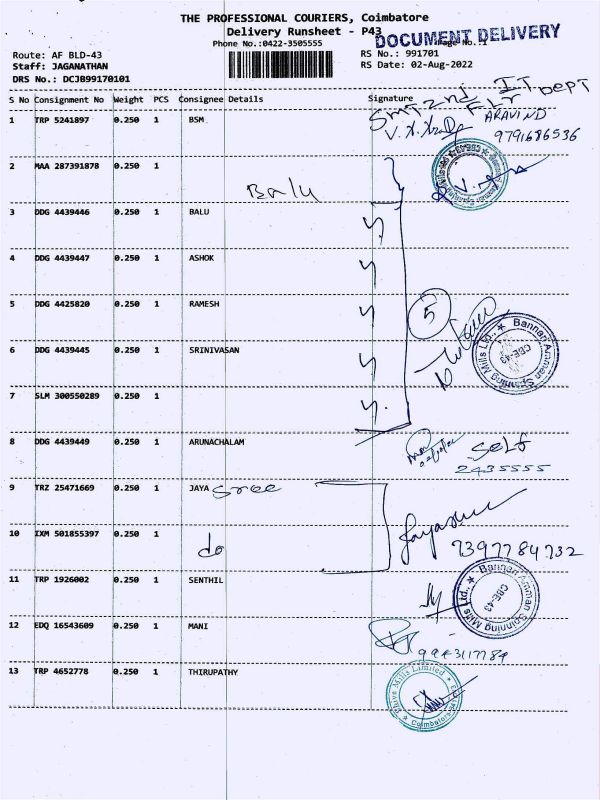 THE PROFESSIONAL COURIERS, Coimbatore
Delivery Runsheet - P43
DOCUMENT DELIVERY
Phone No.:0422-3505555
Page No.:1
Route: AF BLD-43
RS No.: 991701
Staff: JAGANATHAN
RS Date: 02-Aug-2022
DRS No.: DCJB99170101
S No Consignment No Weight PCS Consignee Details Signature
IT DEPT
2nd FLr
ARAVIND
9791686536
1 TRP 5241897 0.250 1 BSM
2 MAA 287391878 0.250 1
Balu
3 DDG 4439446 0.250 1 BALU
4 DDG 4439447 0.250 1 ASHOK
5 DDG 4425820 0.250 1 RAMESH
5
Bannari Amman Spinning Mills Ltd., CBE-43
6 DDG 4439445 0.250 1 SRINIVASAN
7 SLM 300550289 0.250 1
8 DDG 4439449 0.250 1 ARUNACHALAM
Self
2435555
9 TRZ 25471669 0.250 1 JAYA Sree
10 IXM 501855397 0.250 1
do
7397784732
11 TRP 1926002 0.250 1 SENTHIL
Bannari Amman Spinning Mills Ltd., CBE-43
12 EDQ 16543609 0.250 1 MANI
9943117789
13 TRP 4652778 0.250 1 THIRUPATHY
Mills Limited
Coimbatore